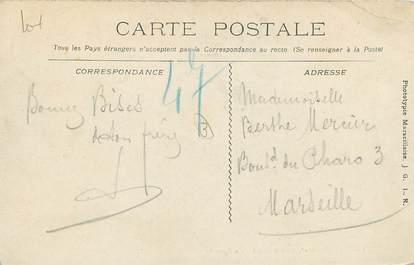 CARTE POSTALE
Tous les Pays étrangers n'acceptent pas la Correspondance au recto (Se renseigner à la Poste)
CORRESPONDANCE
47
Bonnes Bises
de ton frère
ADRESSE
Mademoiselle
Berthe Mercier
Boul.d du Pharo 3
Marseille
Phototypie Marseillaise, J G I. R.